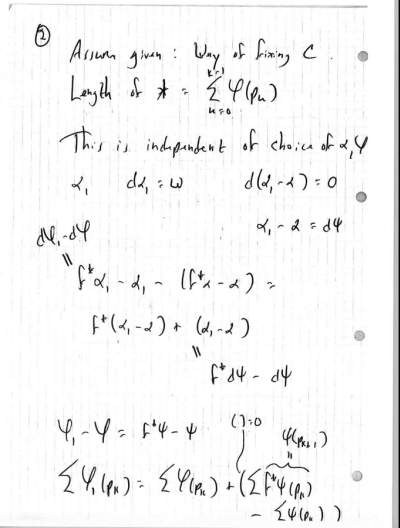 ②
Assume given : Way of fixing C
Length of * = Σ_{k=0}^{k-1} φ(p_k)
This is independent of choice of α, φ
α₁ dα₁ = ω d(α₁ - α) = 0
α₁ - α = dψ
dφ₁ - dφ
||
f*α₁ - α₁ - (f*α - α) =
f*(α₁ - α) + (α₁ - α)
||
f*dψ - dψ
( ) = 0
ψ(p_{k+1})
||
φ₁ - φ = f*ψ - ψ
Σφ₁(p_k) = Σφ(p_k) + (Σf*ψ(p_k)
- Σψ(p_k) )